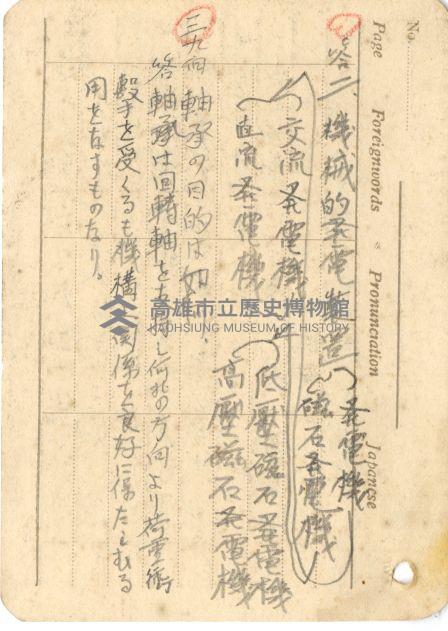 No.
Page Foreignwords & Pronunciation Japanese
答二、機械的発電装置
発電機
磁石発電機
交流発電機
直流発電機
低壓磁石発電機
高壓磁石発電機
三九、問 軸承の目的は如何
答 軸承は回轉軸を支承し何れの方向より荷重衝
撃を受くるも機構関係を良好に保たしむる
用をなすものなり。
高雄市立歷史博物館
KAOHSIUNG MUSEUM OF HISTORY